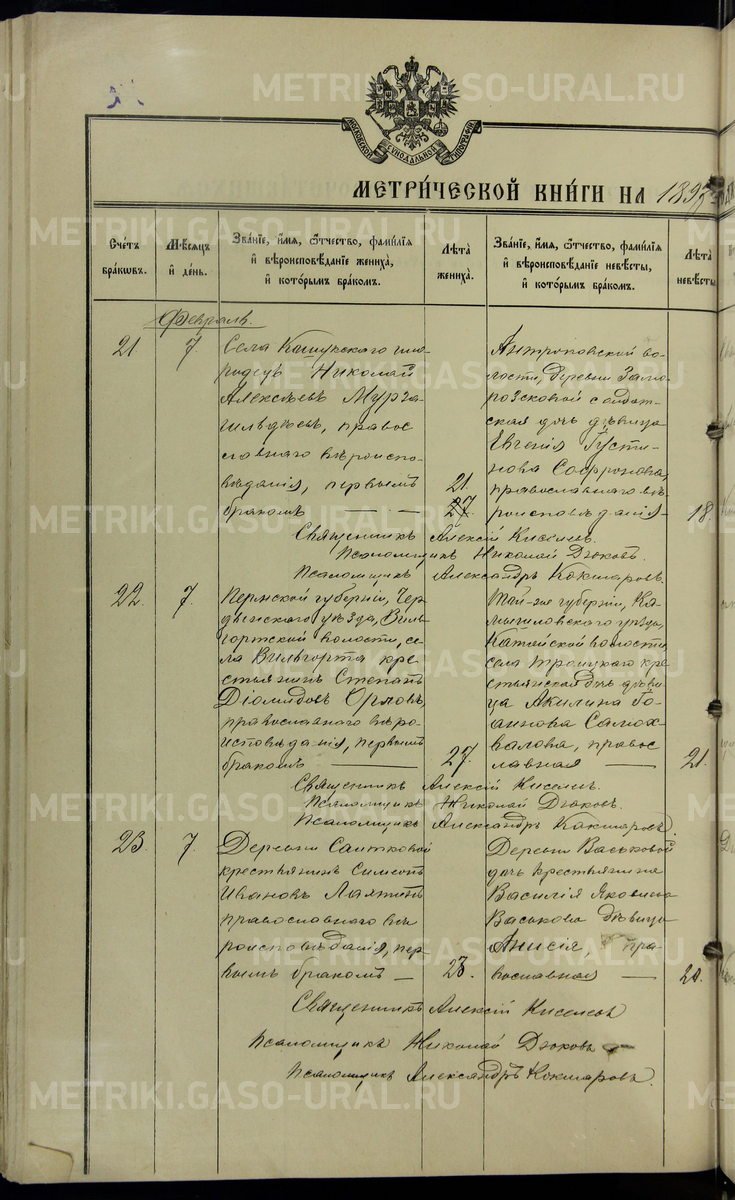 METRIKI.GASO-URAL.RU
МОСКОВСКОЙ СУНОДАЛЬНОЙ ТИПОГРАФІИ
МЕТРИ́ЧЕСКОЙ КНИ́ГИ НА 189
Сче́тъ бра́кѡвъ.
Мѣ́сяцъ и҆ де́нь.
Зва́нїе, и҆́мя, ѻ҆́тчество, фами́лїя и҆ вѣроисповѣ́данїе жениха̀, и҆ кото́рымъ бра́комъ.
Лѣ́та жениха̀.
Зва́нїе, и҆́мя, ѻ҆́тчество, фами́лїя и҆ вѣроисповѣ́данїе невѣ́сты, и҆ кото́рымъ бра́комъ.
Лѣ́та невѣ́сты
Февраль.
21
7.
Села
родецъ Николай
Алексѣевъ Мурза-
гильдѣевъ, правос
славнаго вѣроиспо-
вѣданія, первымъ
бракомъ
21.
27
Антроповской во-
лости, деревни Замо-
розсковой солдат-
ская дочь дѣвица
Евгенія Густи-
нова Сафронова,
православнаго вѣ-
роисповѣданія
18.
Священникъ Алексій Киселевъ.
Псаломщикъ Николай Дюковъ.
Псаломщикъ Александръ Кокшаровъ.
22.
7.
Пермской губерніи, Чер-
дынскаго уѣзда, Виль-
гортской волости, се-
ла Вильгорта кре-
стьянинъ Степанъ
Діомидовъ Орловъ,
православнаго вѣро-
исповѣданія, первымъ
бракомъ
27.
Той-же губерніи, Ка-
мышловскаго уѣзда,
волости,
села Троицкаго кре-
стьянская дочь дѣви-
ца Акилина Іо-
аннова Самох-
валова, правос
лавная
21.
Священникъ Алексій Киселевъ.
Псаломщикъ Николай Дюковъ.
Псаломщикъ Александръ Кокшаровъ.
23.
7.
Деревни Саитковой
крестьянинъ Симеонъ
Ивановъ Лаптинъ
православнаго вѣ
роисповѣданія, пер-
вымъ бракомъ
23.
Деревни Васьковой
дочь крестьянина
Василія Яковлева
Васькова дѣвица
Анисія, пра-
вославная
20.
Священникъ Алексій Киселевъ
Псаломщикъ Николай Дюковъ
Псаломщикъ Александръ Кокшаровъ.